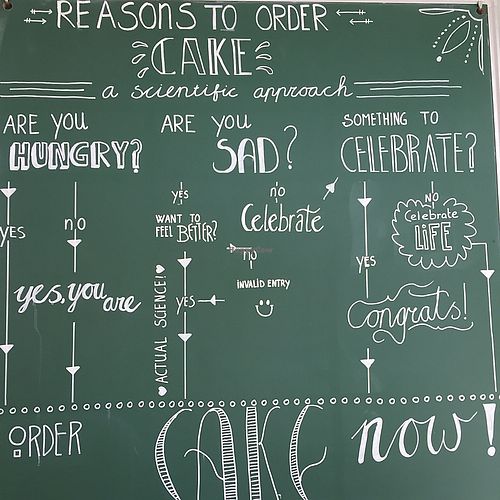 REASONS TO ORDER
CAKE
a scientific approach
ARE YOU
HUNGRY?
YES
no
yes, you are
ARE YOU
SAD?
yes
WANT TO
FEEL BETTER?
YES
♥ ACTUAL SCIENCE! ♥
no
Celebrate
no
INVALID ENTRY
SOMETHING TO
CELEBRATE?
YES
Congrats!
NO
Celebrate
LiFE
ORDER CAKE now!